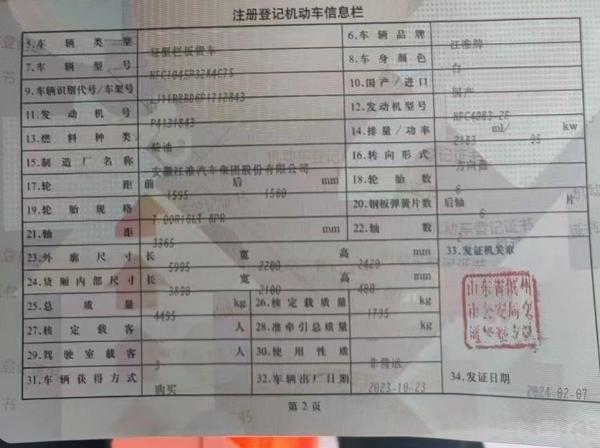 注册登记机动车信息栏
5.车辆类型 轻型栏板货车 6.车辆品牌 江淮牌
7.车辆型号 HFC1045P32K4C7S 8.车身颜色 白
9.车辆识别代号/车架号 10.国产/进口 国产
11.发动机号 P4131843 12.发动机型号
13.燃料种类 柴油 14.排量/功率 ml/ 95 kw
15.制造厂名称 安徽江淮汽车集团股份有限公司 16.转向形式 方向盘
17.轮距 前 1595 后 1560 mm 18.轮胎数 6
19.轮胎规格 7.00R16LT 8PR 20.钢板弹簧片数 后轴 片
21.轴距 3365 mm 22.轴数
23.外廓尺寸 长 5995 宽 2200 高 2420 mm 33.发证机关章
24.货厢内部尺寸 长 3800 宽 2100 高 400 mm
25.总质量 4495 kg 26.核定载质量 1735 kg
27.核定载客 人 28.准牵引总质量 kg
29.驾驶室载客 3 人 30.使用性质 非营运
31.车辆获得方式 购买 32.车辆出厂日期 2023-10-23 34.发证日期 2024-02-07
第2页